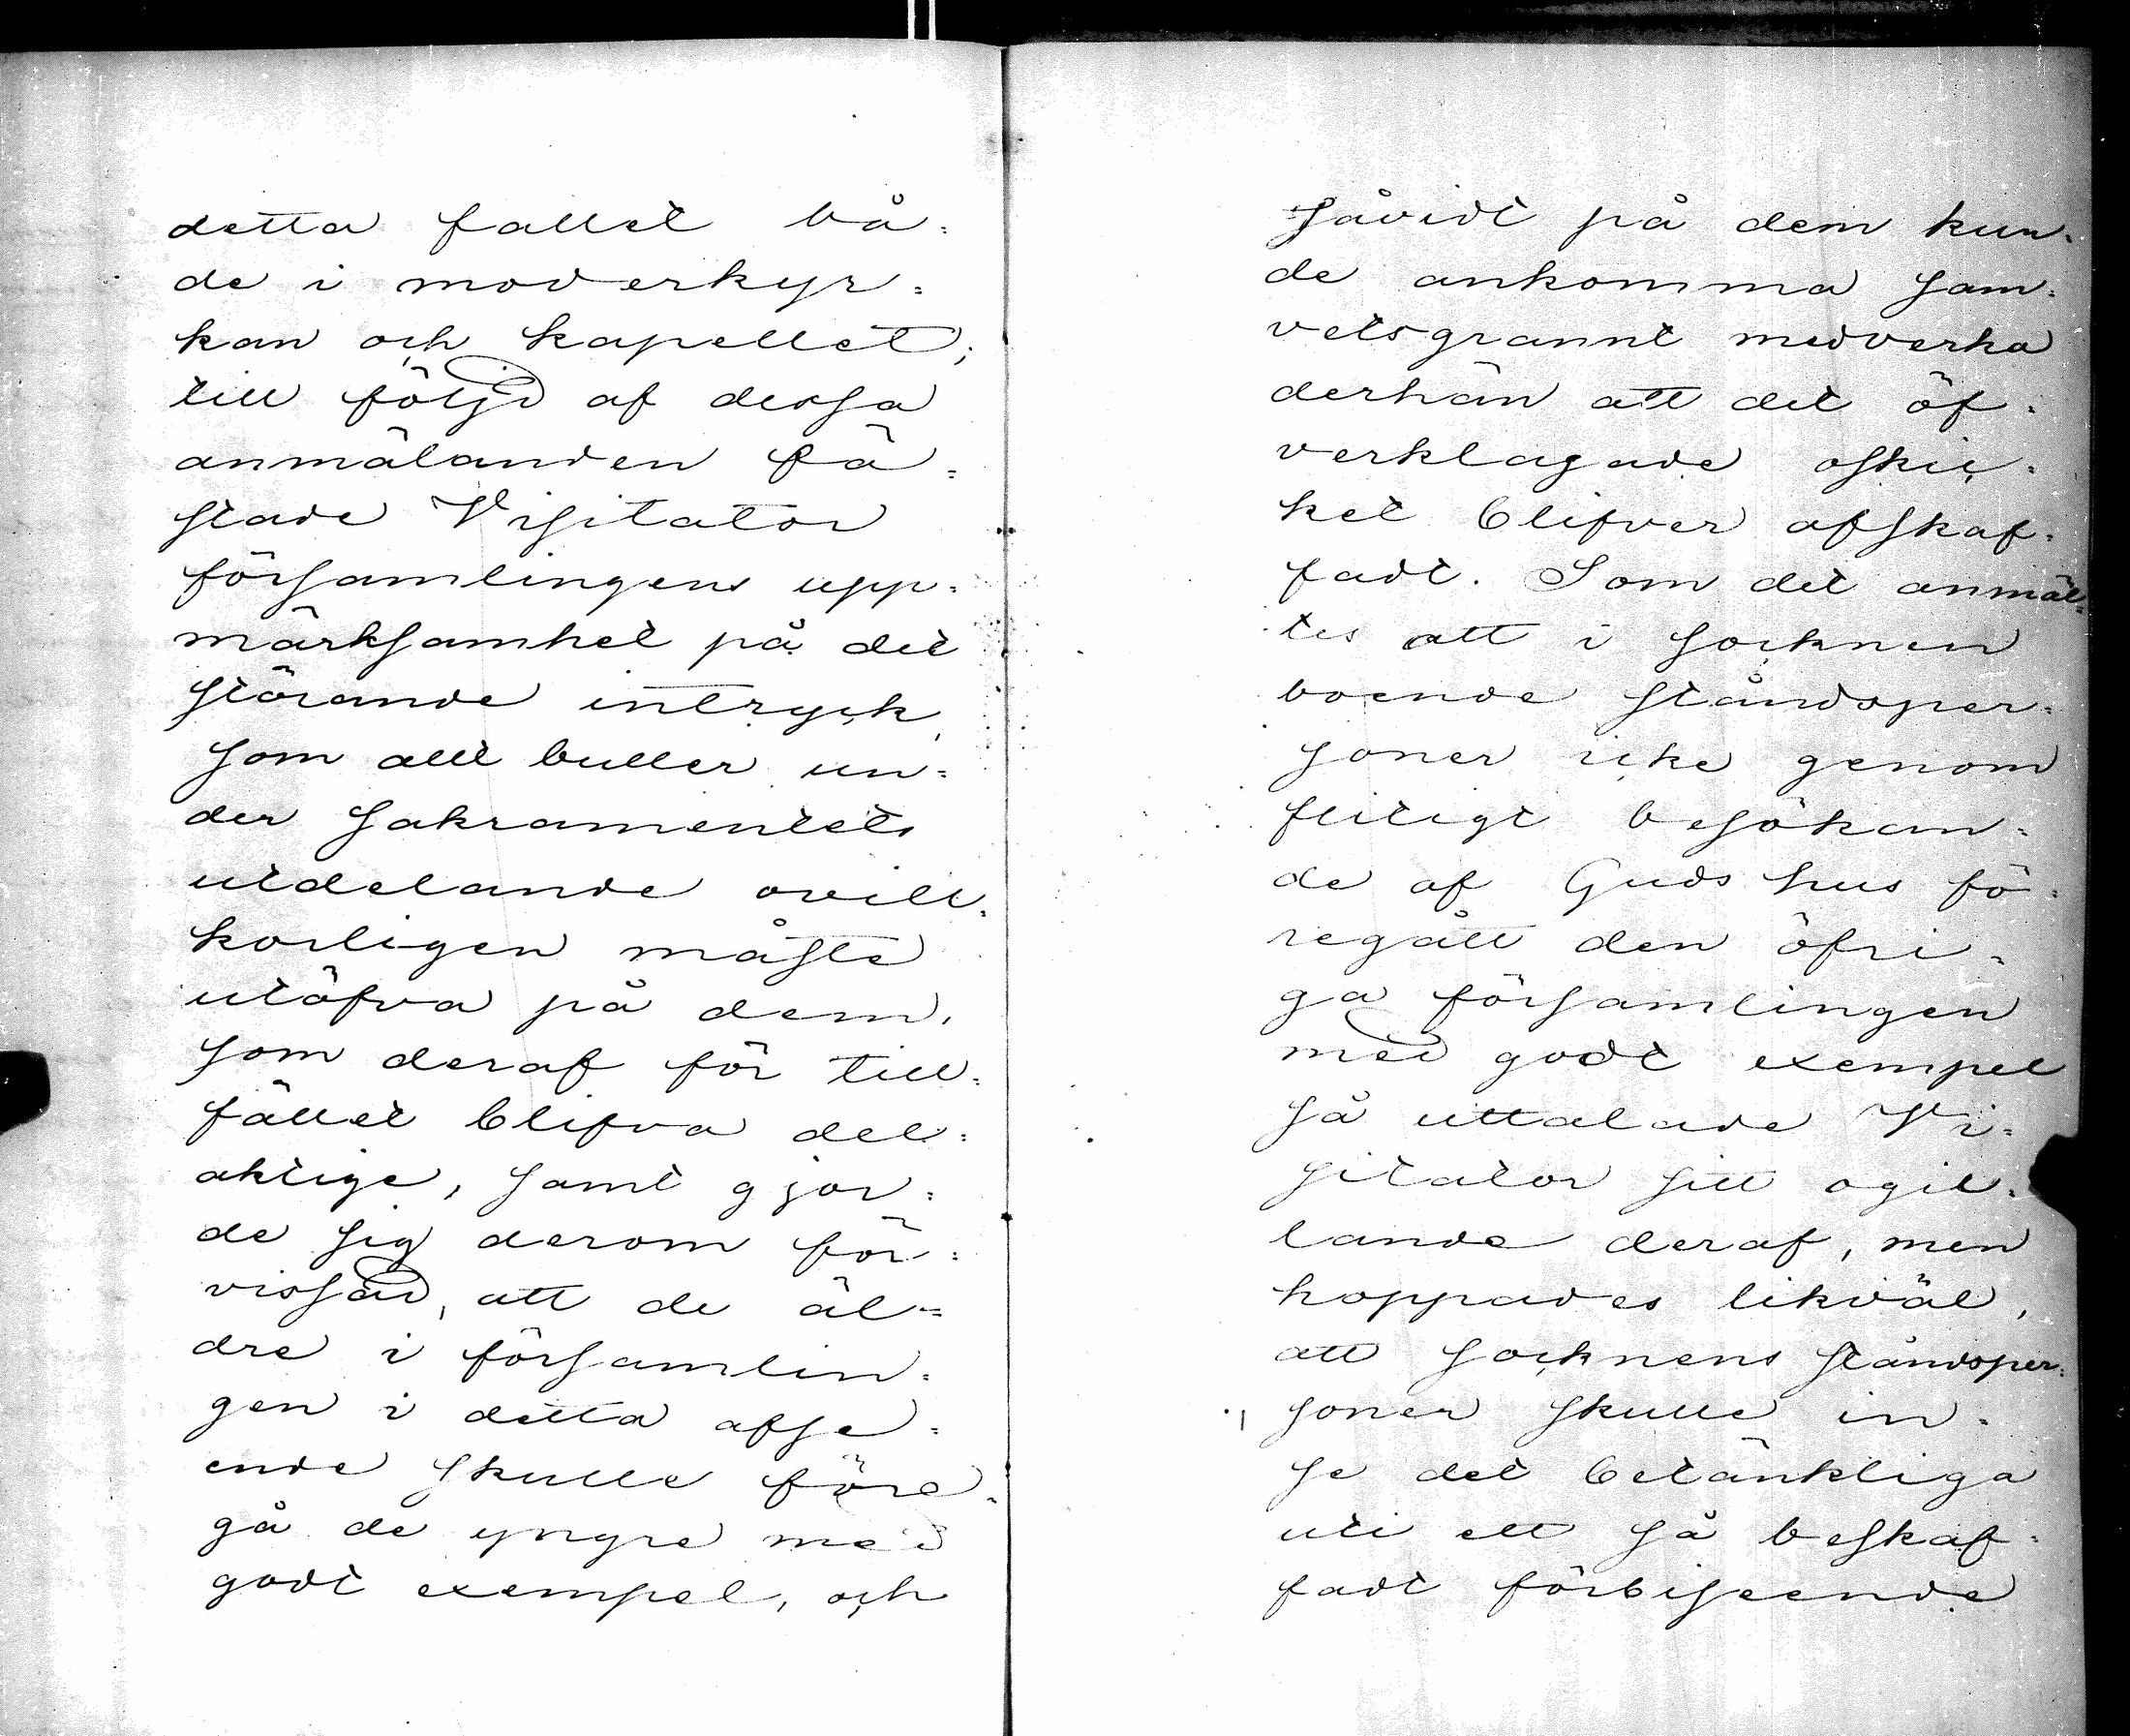 detta fallet bå=
de i moderkyr=
kan och kapellet;
till följd af dessa
anmälanden fä=
stade Visitator
församlingens upp=
märksamhet på det
störande intryck,
som allt buller un=
der sakramentets
utdelande ovill=
korligen måste
utöfva på dem,
som deraf för till=
fället blifva del=
aktige, samt gjor=
de sig derom för=
vissad, att de äl=
dre i församlin=
gen i detta afse=
ende skulle före=
gå de yngre med
godt exempel, och
såvidt på dem kun=
de ankomma sam=
vetsgrannt medverka
derhän att det öf=
verklagade oskic=
ket blifver afskaf=
fadt. Som det anmäl=
tes att i socknen
boende ståndsper=
soner icke genom
flitigt besökan=
de af Guds hus fö=
regått den öfri=
ga församlingen
med godt exempel
så uttalade Vi=
sitator sitt ogil=
lande deraf, men
hoppades likväl,
att socknens ståndsper=
soner skulle in=
se det betänkliga
uti ett så beskaf=
fadt förbiseende